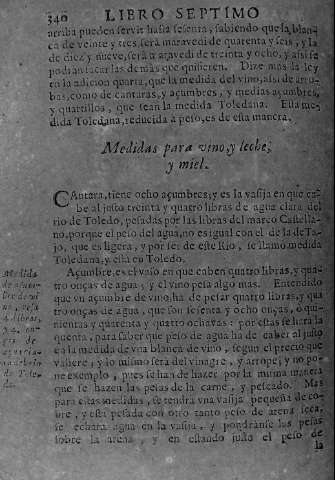 340 LIBRO SEPTIMO
arriba pueden servir hasta sesenta, sabiendo que la blan-
ca de veinte y tres, será maravedi de quarenta y seis, y la
de diez y nueve, será maravedi de treinta y ocho, y assi se
podran sacar las demàs que quisieren. Dize mas la ley
en la adicion quarta, que la medida del vino, assi de arro-
bas, como de cantaras, y açumbres, y medias açumbres,
y quartillos, que sean la medida Toledana. Esta me-
dida Toledana, reducida a peso, es de esta manera.
Medidas para vino, y leche,
y miel.
CAntara, tiene ocho açumbres, y es la vasija en que ca-
be al justo treinta y quatro libras de agua clara del
rio de Toledo, pesadas por las libras del marco Castella-
no, porque el peso del agua, no es igual con el de la de Ta-
jo, que es ligera, y por ser de este Rio, se llamó medida
Toledana, y está en Toledo.
Açumbre, es el vaso en que caben quatro libras, y qua-
tro onças de agua, y el vino pesa algo mas. Entendido
que vn açumbre de vino, ha de pesar quatro libras, y qua
tro onças de agua, que son sesenta y ocho onças, o qui-
nientas y quarenta y quatro ochavas: por estas se hara la
quenta, para saber que peso de agua ha de caber al justo
en la medida de vna blanca de vino, segun el precio que
valiere, y lo mismo será del vinagre, y arrope, y no po-
ne exemplo, pues se han de hazer por la misma manera
que se hazen las pesas de la carne, y pescado. Mas
para estas medidas, se tendrá vna vasija pequeña de co-
bre, y esté pesada con otro tanto peso de arena seca,
se echara agua en la vasija, y pondránse las pesas
sobre la arena, y en estando justo el peso de
la
Medida
de açum-
bre de vi-
no, pesa
4. libras,
y 4. on-
ças de
de Tole-
do.